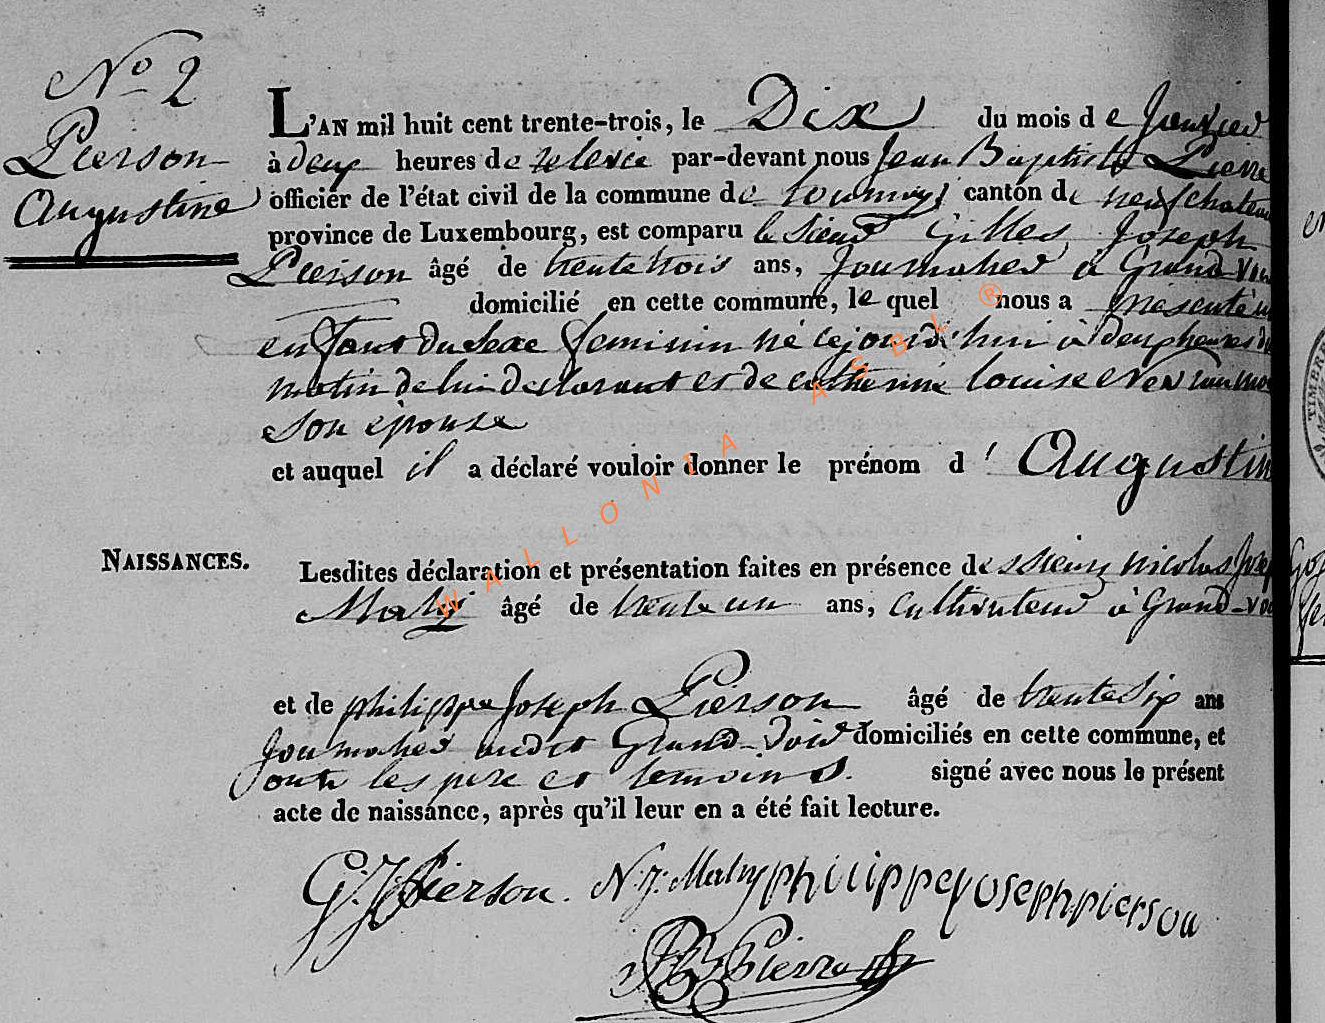 No 2
Pierson
Augustine
L'AN mil huit cent trente-trois, le Dix du mois de Janvier
à deux heures de relevée par-devant nous Jean Baptiste Pierre
officier de l'état civil de la commune de tournay, canton de neufchateau
province de Luxembourg, est comparu le Sieur Gilles Joseph
Pierson âgé de trente trois ans, Journalier à Grand-voir
domicilié en cette commune, le quel nous a présenté un
enfant du Sexe feminin né cejourd'hui à deux heures du
matin de lui declarant et de catherine louise
son épouse
et auquel il a déclaré vouloir donner le prénom d' Augustin
NAISSANCES.
Lesdites déclaration et présentation faites en présence des Sieurs nicolas Josep
Mahy âgé de trente un ans, Cultivateur à Grand-voir
et de philippe Joseph Pierson âgé de trente Six ans
Journalier audit Grand-Voir domiciliés en cette commune, et
ont les pere et temoins. signé avec nous le présent
acte de naissance, après qu'il leur en a été fait lecture.
G. J. Pierson. N. J. Mahy philippe yoseph pierson
JB Pierre
WALLONIA ASBL ®
TIMBRE